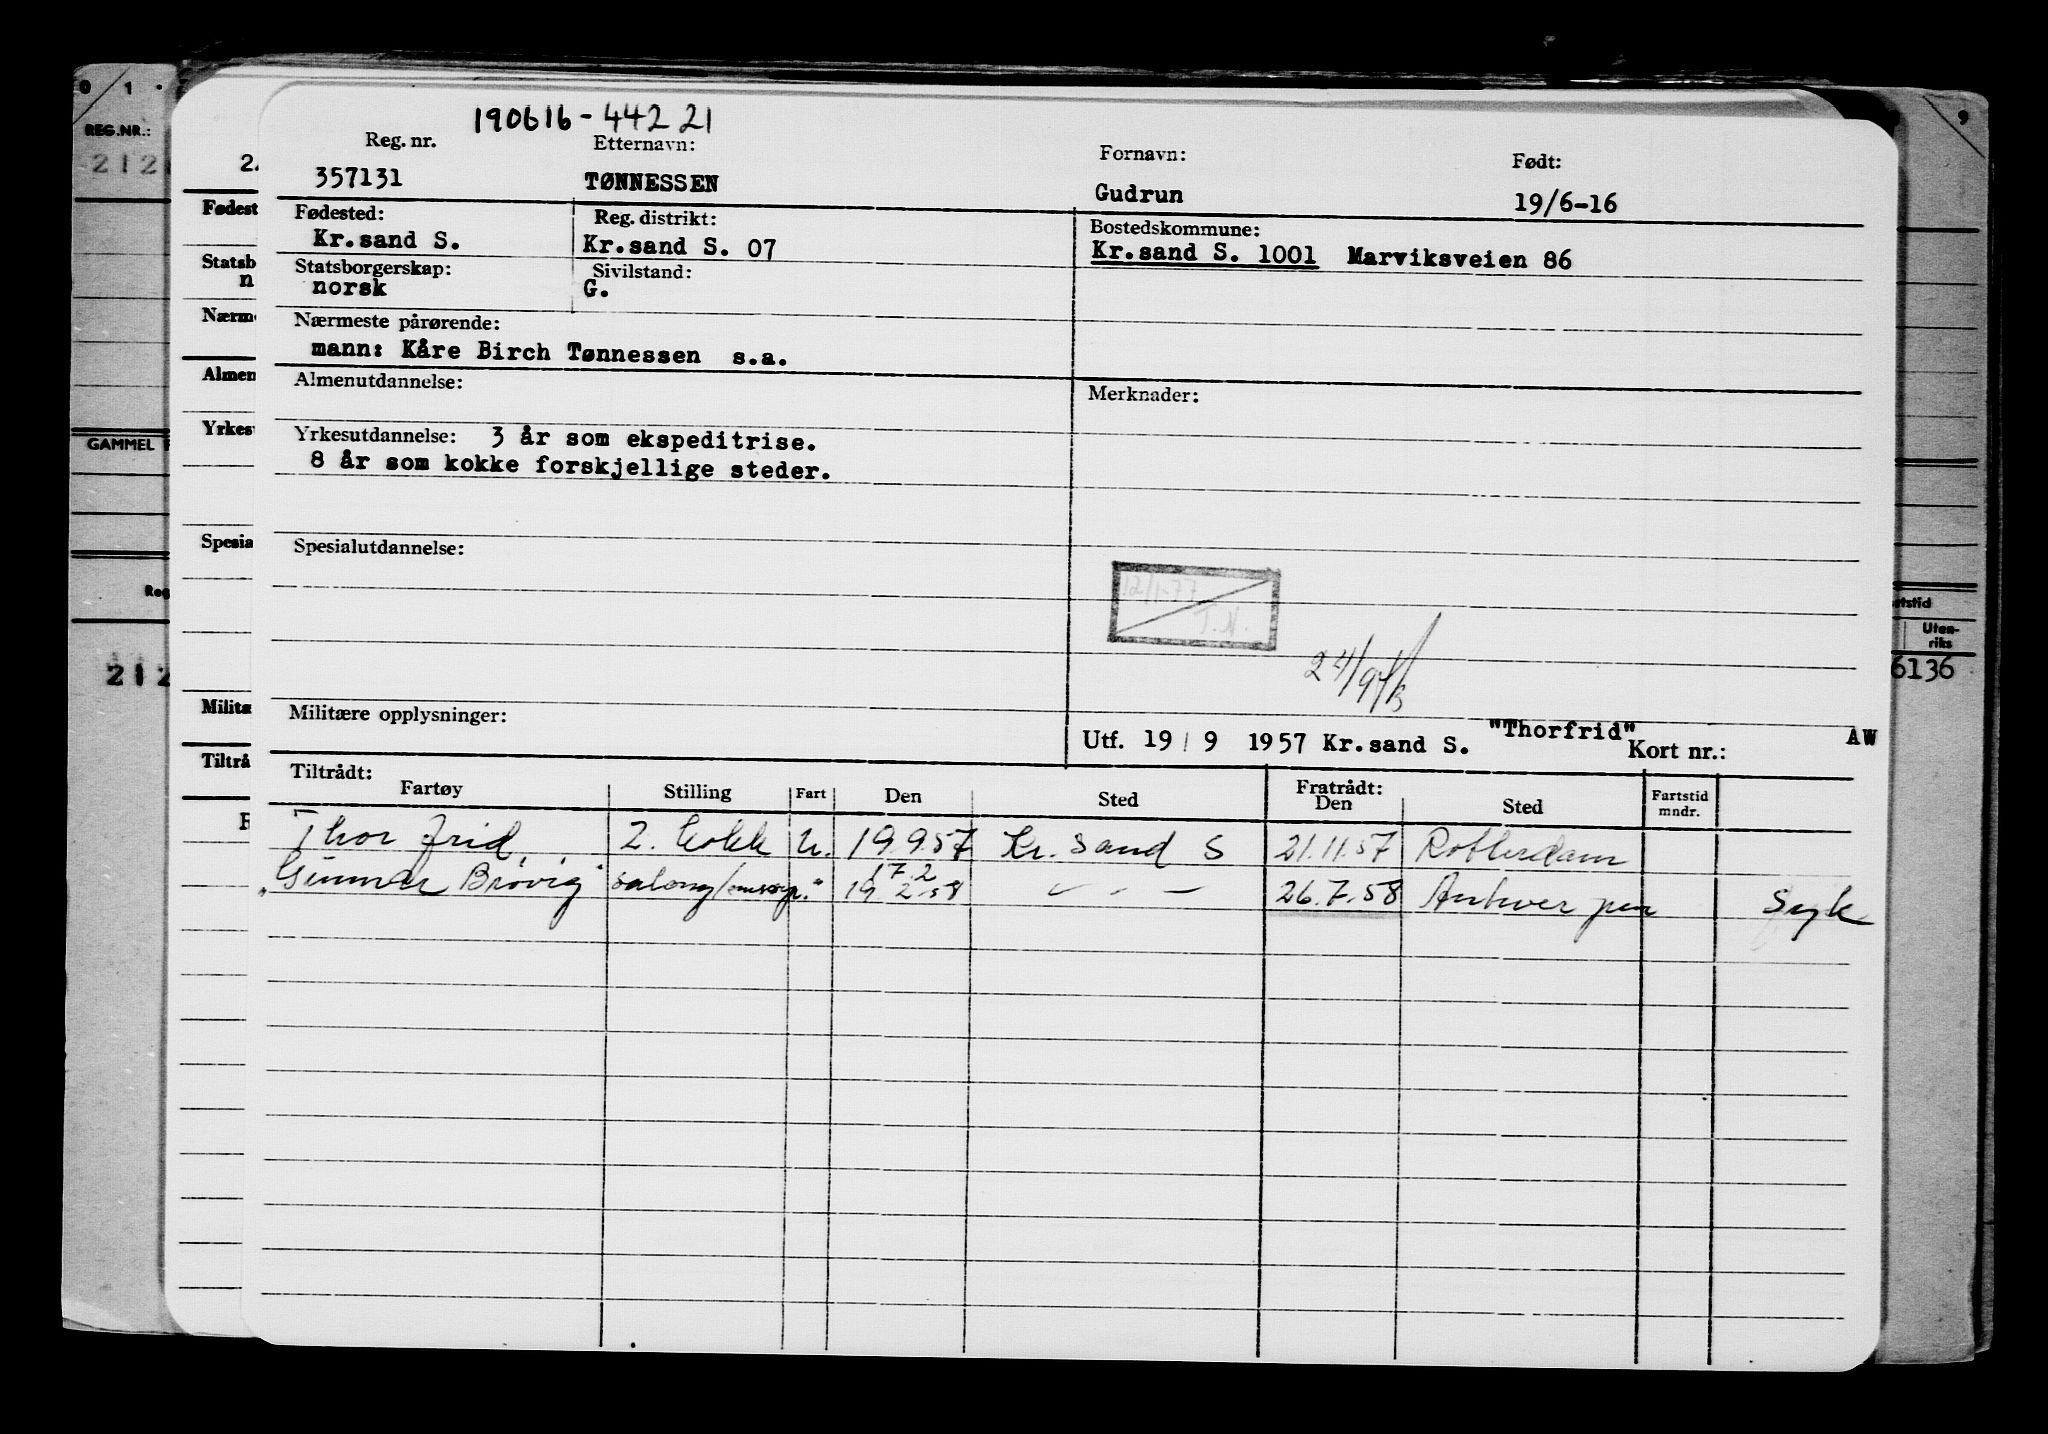 190616-44221
Reg. nr. Etternavn: Fornavn: Født:
357131 TØNNESSEN Gudrun 19/6-16
Fødested: Reg. distrikt: Bostedskommune:
Kr.sand S. Kr.sand S. 07 Kr.sand S. 1001 Marviksveien 86
Statsborgerskap: Sivilstand:
norsk G.
Nærmeste pårørende:
mann: Kåre Birch Tønnessen s.a.
Almenutdannelse: Merknader:
Yrkesutdannelse: 3 år som ekspeditrise.
8 år som kokke forskjellige steder.
Spesialutdannelse:
12/1-77
T.N.
Militære opplysninger:
Utf. 19/9 1957 Kr.sand S. "Thorfrid" Kort nr.: AW
Tiltrådt: Fratrådt:
Fartøy Stilling Fart Den Sted Den Sted Fartstid mndr.
Thorfrid 2. kokk U. 19.9.57 Kr. Sand S 21.11.57 Rotterdam
17.2
"Gunnar Brøvig" " 19 2 58 — " — 26.7.58 Antwerpen Syk
0 1
REG.NR.:
212
GAMMEL
Reg
212
2
Fødest
Statsb
n
Nærme
Almen
Yrkes
Spesia
Militæ
Tiltrå
F
9
Uten-
riks
6136